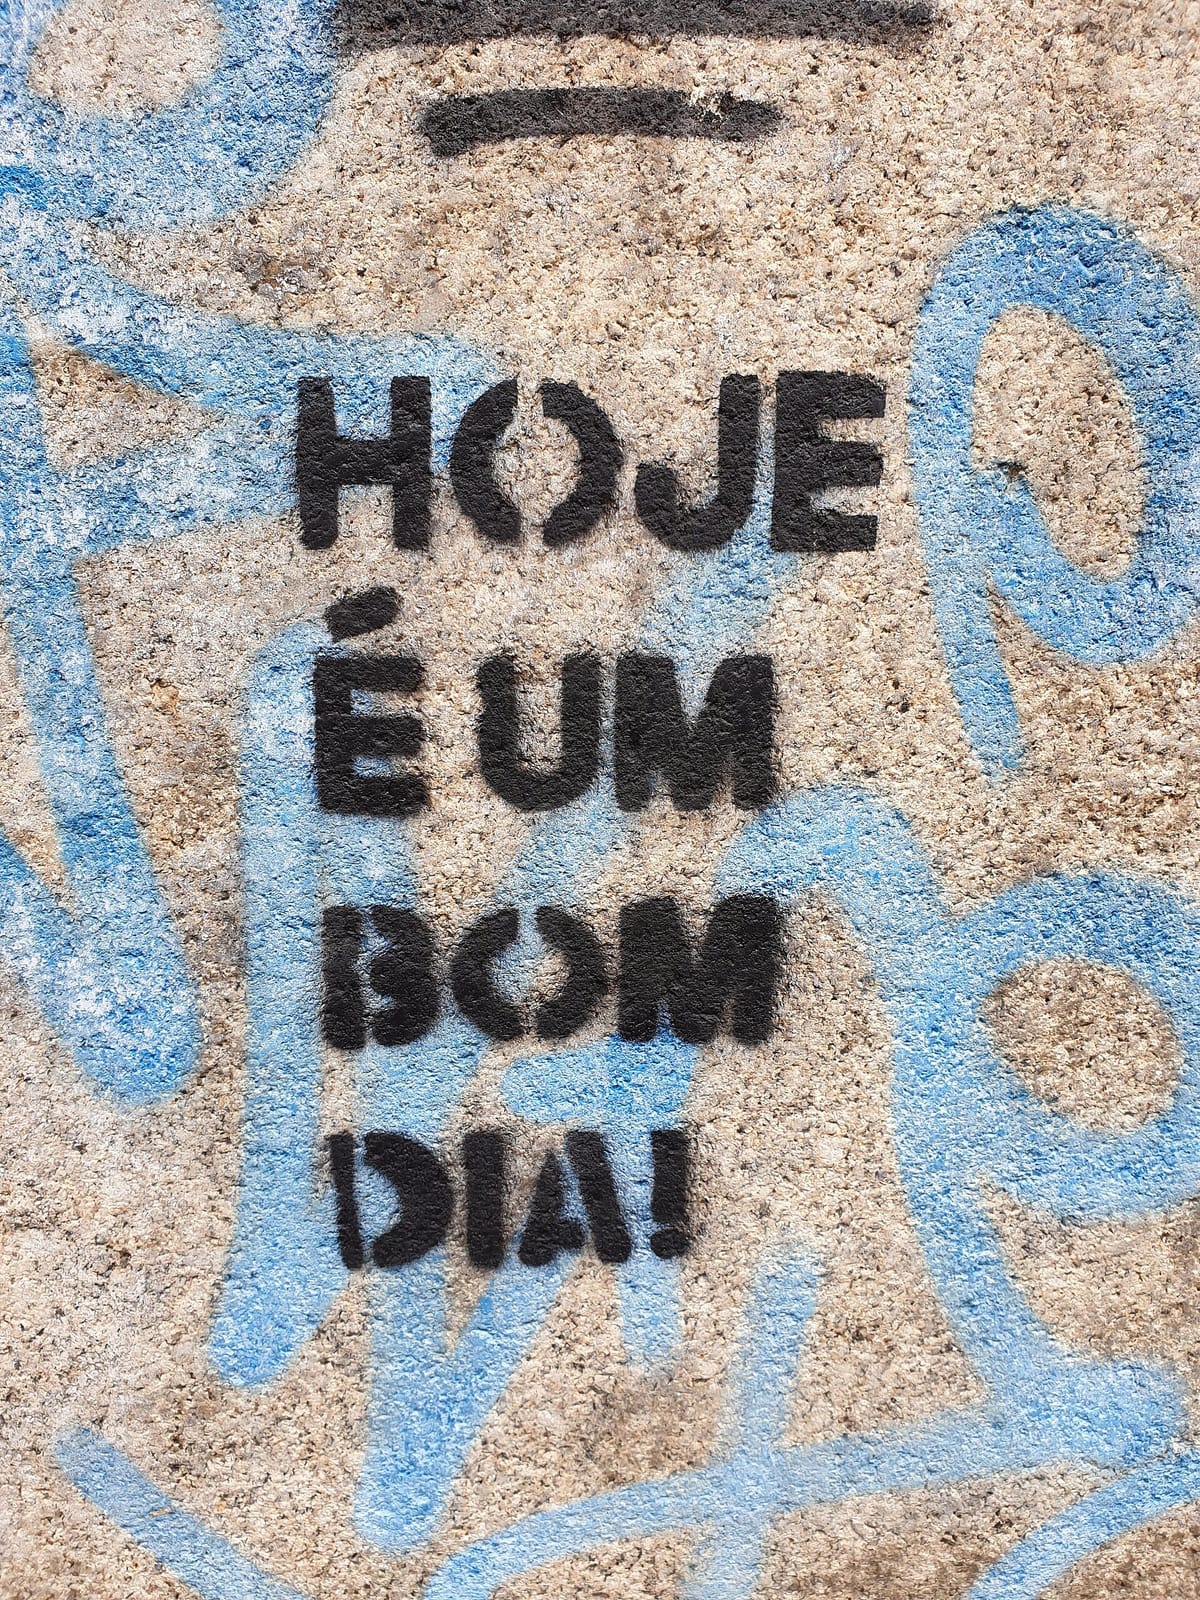 HOJE
É UM
BOM
DIA!